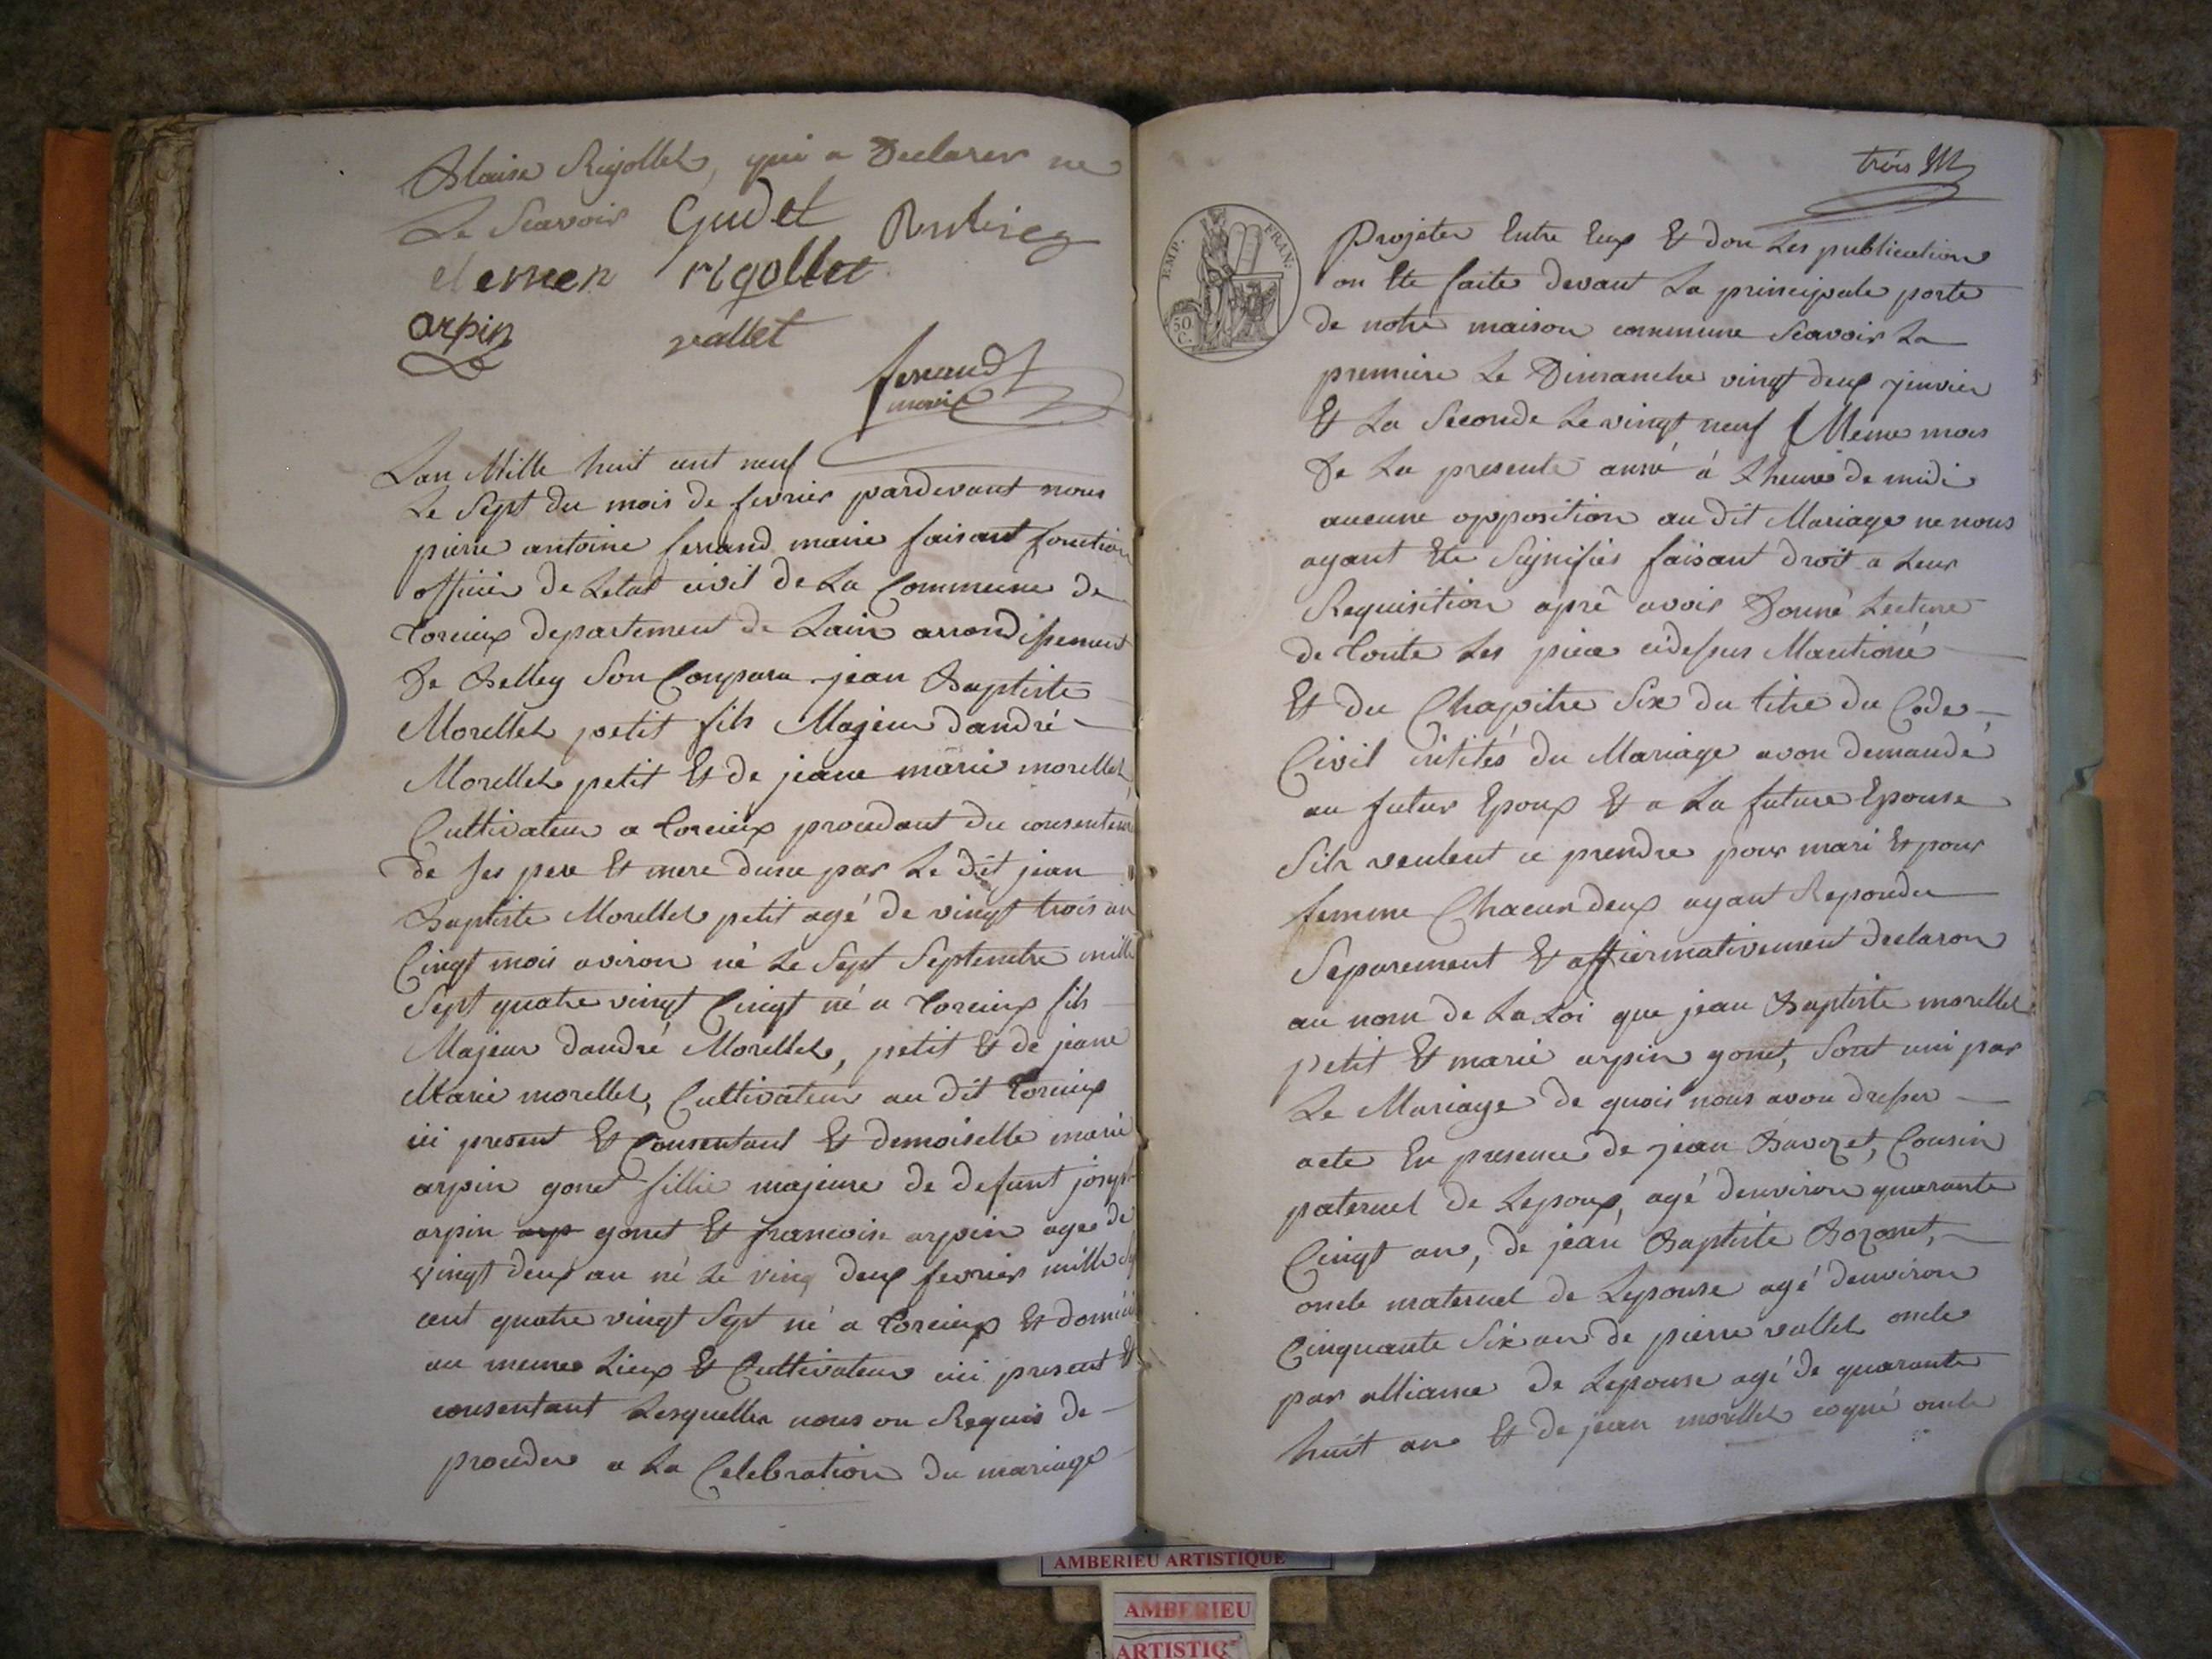 Blaise Rigollet, qui a Declarer ne
Le Scavoir Gudet
clemen rigollet
arpin vallet
ferrand
maire
Lan Mille huit cent neuf
Le Sept du mois de fevrier pardevant nous
pierre antoine ferrand maire faisant fonction
officier de Letat civil de La Commune de
torcieux departement de Lain arrondissement
De Belley Son Comparu jean Baptiste
Morellet petit fils Majeur dandré
Morellet petit Et de jeane marie morellet
Cultivateur a torcieux procedant du consentem
de ses pere Et mere dune par Le dit jean
Baptiste Morellet petit agé de vingt trois an
Cingt mois aviron né Le Sept Septembre mille
Sept quatre vingt Cingt né a torcieux fils
Majeur dandré Morellet, petit Et de jeane
Marie morellet, Cultivateur au dit torcieux
ici present Et Consentant Et demoiselle marie
arpin gonet fillie majeure de defunt joseph
arpin arp gonet Et francoise arpin agee de
vingt deux an né Le ving deux fevrier mille Sep
cent quatre vingt Sept né a torcieux Et domicil
au meme Lieux Et Cultivateur ici present Et
consentant Lesquelles nous on Requis de
proceder a La Celebration du mariage
trois
EMP. FRAN.
50 C.
Projeter Entre Eux Et don Les publication
on Ete faite devant La principale porte
de notre maison commune Scavoir La
premiere Le Dimanche vingt deux jenvier
Et La Seconde Le vingt neuf Meme mois
De La presente anné á Lheure de midi
aucune opposition au dit Mariage ne nous
ayant Ete Signifiés faisant droit a Leur
Requisition aprê avoir Donné Lecture
de toute Les piece cidessus Mantioné
Et du Chapitre Six du titre du Code
Civil intités du Mariage avon demandé
au futur Epoux Et a La future Epouse
Sils veulent ce prendre pour mari Et pour
femme Chacun deux ayant Repondu
Separement Et affirmativement declaron
au nom de La Loi que jean Baptiste morellet
petit Et marie arpin gonet, Sont uni par
Le Mariage de quois nous avon dresser
acte En presence de jean Bavozet, Cousin
paternel de Lepoux, agé denviron quarante
Cingt an, de jean Baptiste Bozonet,
oncle maternel de Lepouse agé denviron
Cinquante Six an de pierre vallet oncle
par alliance de Lepouse agé de quarante
huit an Et de jean morellet cogné oncle
AMBERIEU ARTISTIQUE
AMBERIEU
ARTISTIQ